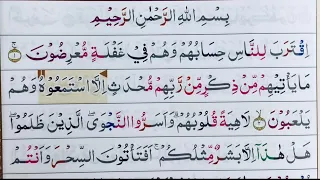 بِسْمِ اللهِ الرَّحْمٰنِ الرَّحِيْمِ
اِقْتَرَبَ لِلنَّاسِ حِسَابُهُمْ وَهُمْ فِيْ غَفْلَةٍ مُّعْرِضُوْنَ ۚ ﴿۱﴾
مَا يَاْتِيْهِمْ مِّنْ ذِكْرٍ مِّنْ رَّبِّهِمْ مُّحْدَثٍ اِلَّا اسْتَمَعُوْهُ وَهُمْ
يَلْعَبُوْنَ ۙ ﴿۲﴾ لَاهِيَةً قُلُوْبُهُمْ ؕ وَاَسَرُّوا النَّجْوَى ۖ الَّذِيْنَ ظَلَمُوْا ۖ
هَلْ هٰذَاۤ اِلَّا بَشَرٌ مِّثْلُكُمْ ۚ اَفَتَاْتُوْنَ السِّحْرَ وَاَنْتُمْ